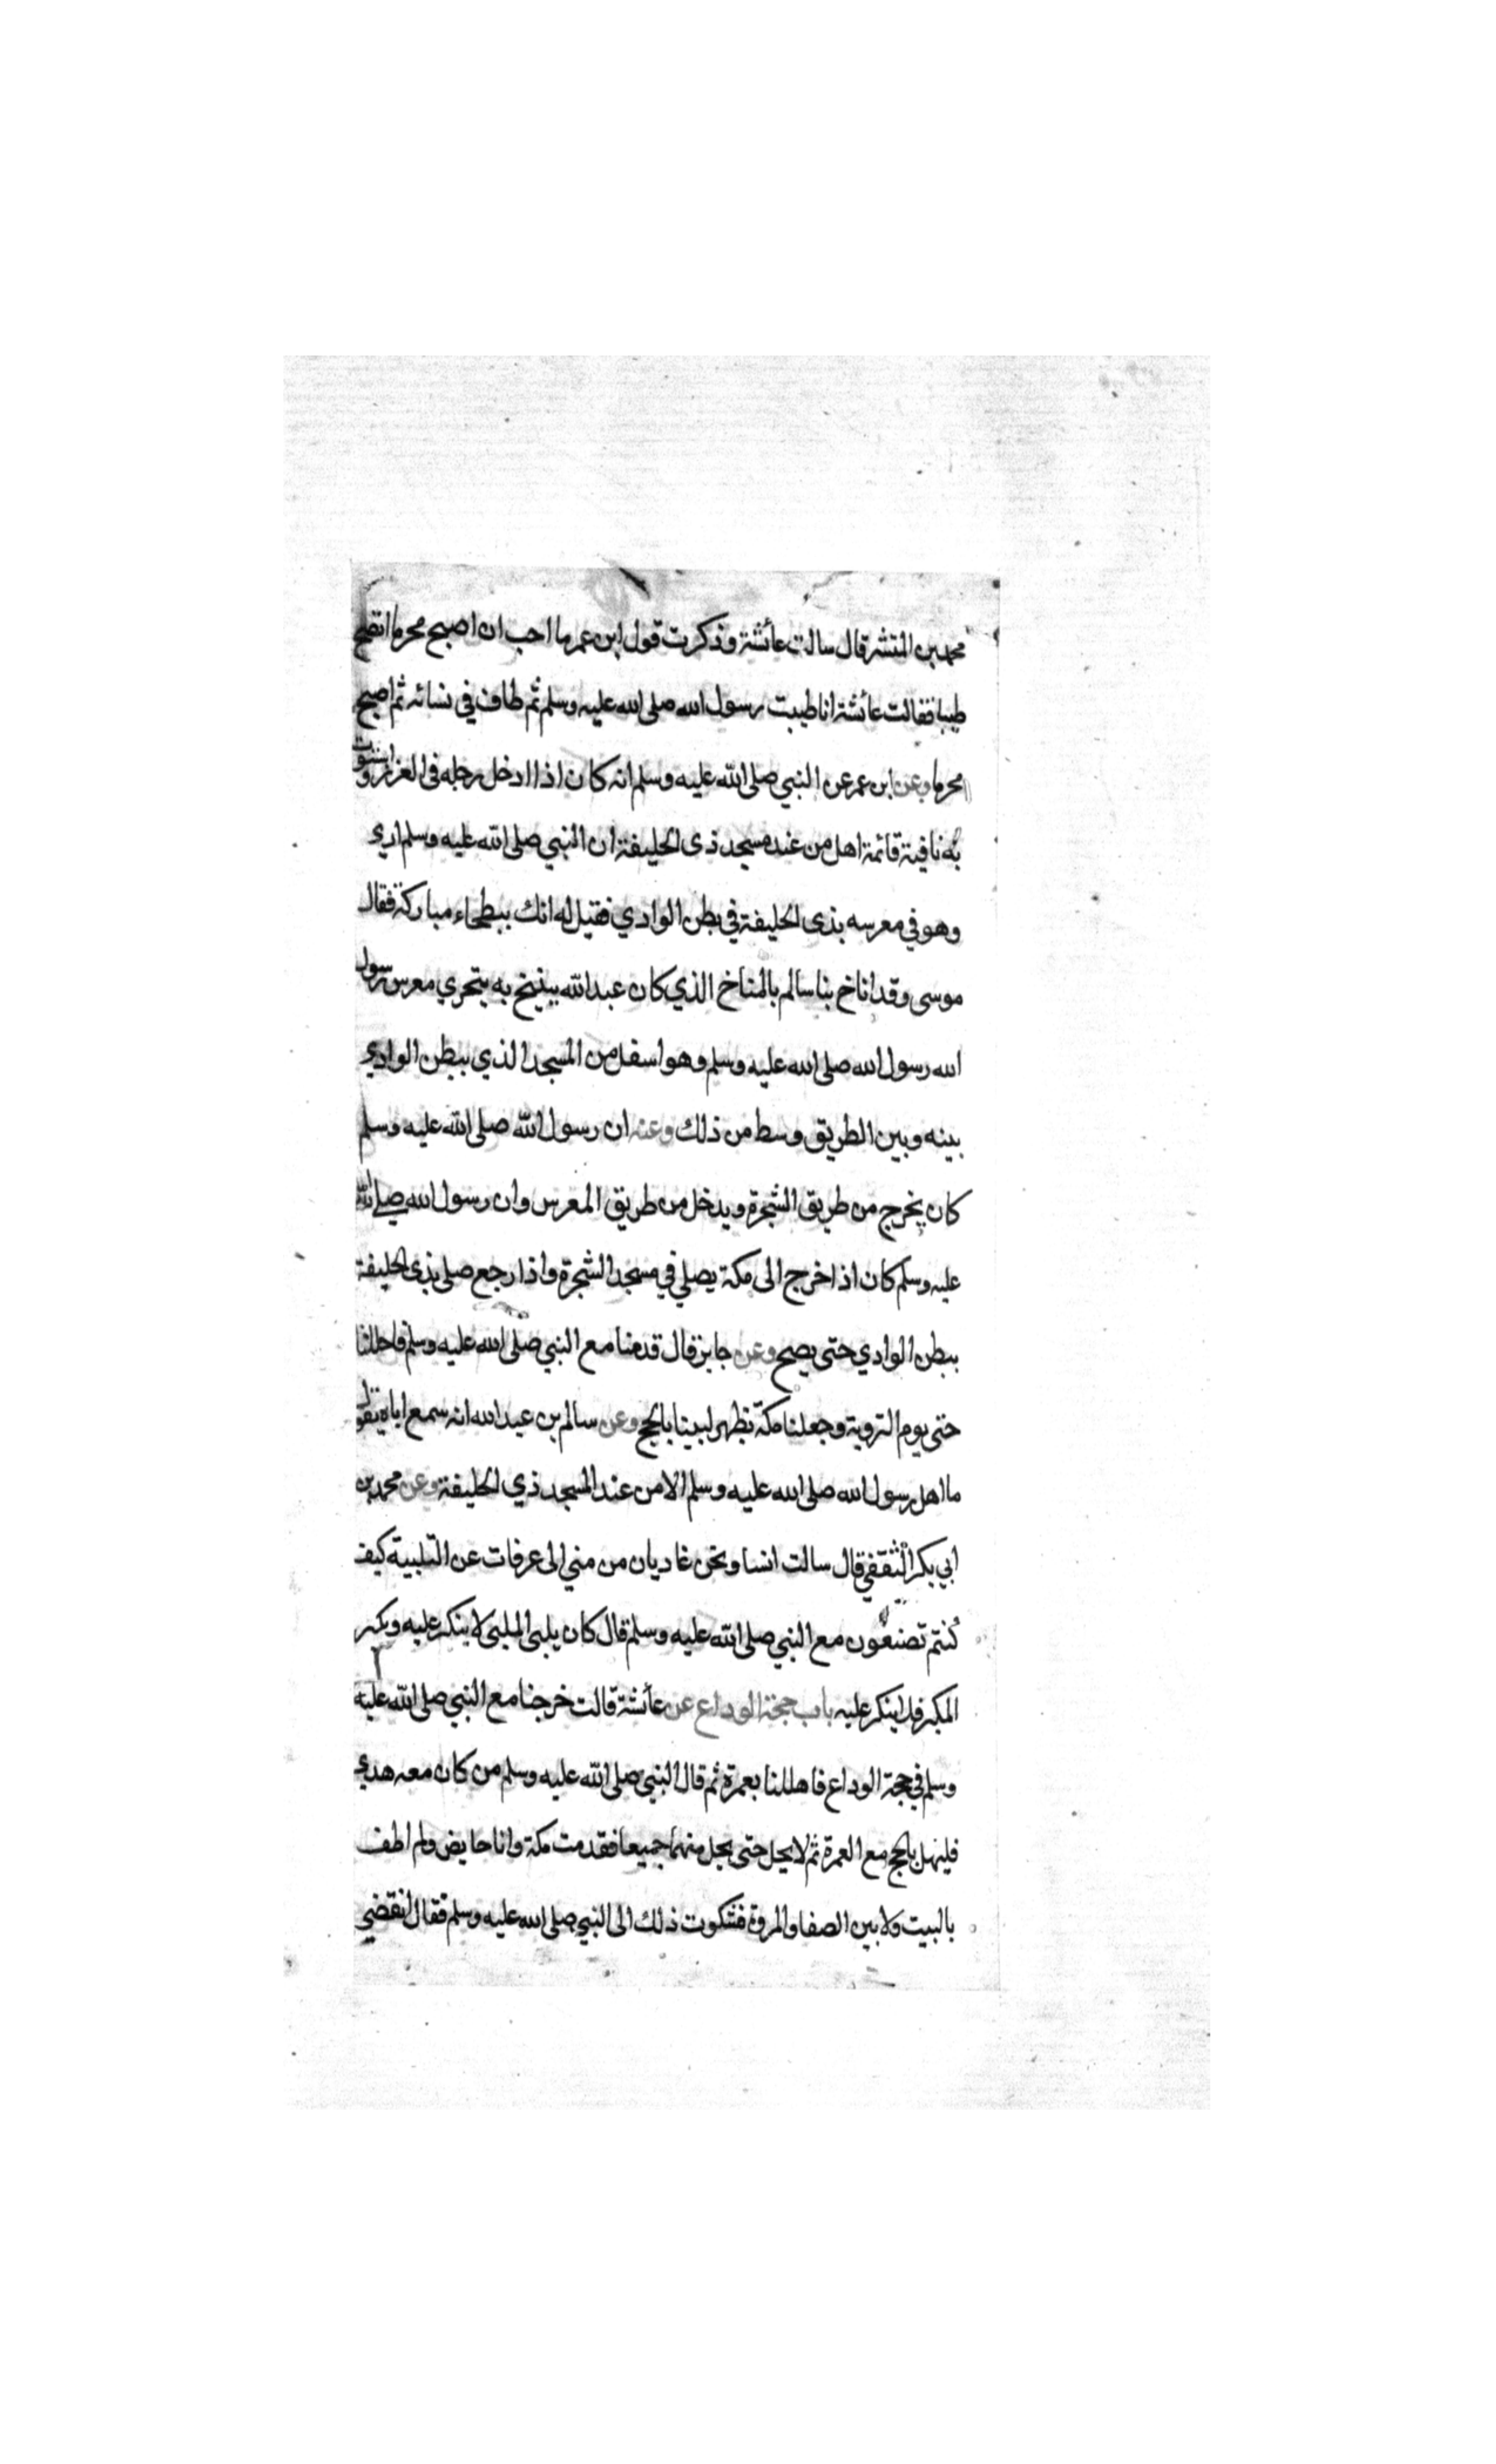 محمد بن المنتشر قال سالت عائشة وذكرت قول ابن عمر ما احب ان اصبح محرما انضح
طيبا فقالت عائشة انا طيبت رسول الله صلى الله عليه وسلم ثم طاف في نسائه ثم اصبح
محرما وعن ابن عمر عن النبي صلى الله عليه وسلم انه كان اذا ادخل رجله في الغرز واستوت
به ناقته قائمة اهل من عند مسجد ذى الحليفة ان النبي صلى الله عليه وسلم اري
وهو في معرسه بذى الحليفة في بطن الوادي فقيل له انك ببطحاء مباركة فقال
موسى وقد اناخ بنا سالم بالمناخ الذي كان عبد الله ينيخ به يتحري معرس رسول
الله رسول الله صلى الله عليه وسلم وهو اسفل من المسجد الذي ببطن الوادي
بينه وبين الطريق وسط من ذلك وعنه ان رسول الله صلى الله عليه وسلم
كان يخرج من طريق الشجرة ويدخل من طريق المعرس وان رسول الله صلى الله
عليه وسلم كان اذا خرج الى مكة يصلي في مسجد الشجرة واذا رجع صلى بذى الحليفة
ببطن الوادي حتى يصبح وعن جابر قال قدمنا مع النبي صلى الله عليه وسلم فاحللنا
حتى يوم التروية وجعلنا مكة بظهر لبينا بالحج وعن سالم بن عبد الله انه سمع اباه يقول
ما اهل رسول الله صلى الله عليه وسلم الا من عند المسجد ذي الحليفة وعن محمد بن
ابي بكر الثقفي قال سالت انسا ونحن غاديان من مني الى عرفات عن التلبية كيف
كنتم تصنعون مع النبي صلى الله عليه وسلم قال كان يلبي الملبي لا ينكر عليه ويكبر
المكبر فلا ينكر عليه باب حجة الوداع عن عائشة قالت خرجنا مع النبي صلى الله عليه
وسلم في حجة الوداع فاهللنا بعمرة ثم قال النبي صلى الله عليه وسلم من كان معه هدي
فليهل بالحج مع العمرة ثم لا يحل حتى يحل منهما جميعا فقدمت مكة وانا حايض ولم اطف
بالبيت ولا بين الصفا والمروة فشكوت ذلك الى النبي صلى الله عليه وسلم فقال انقضي